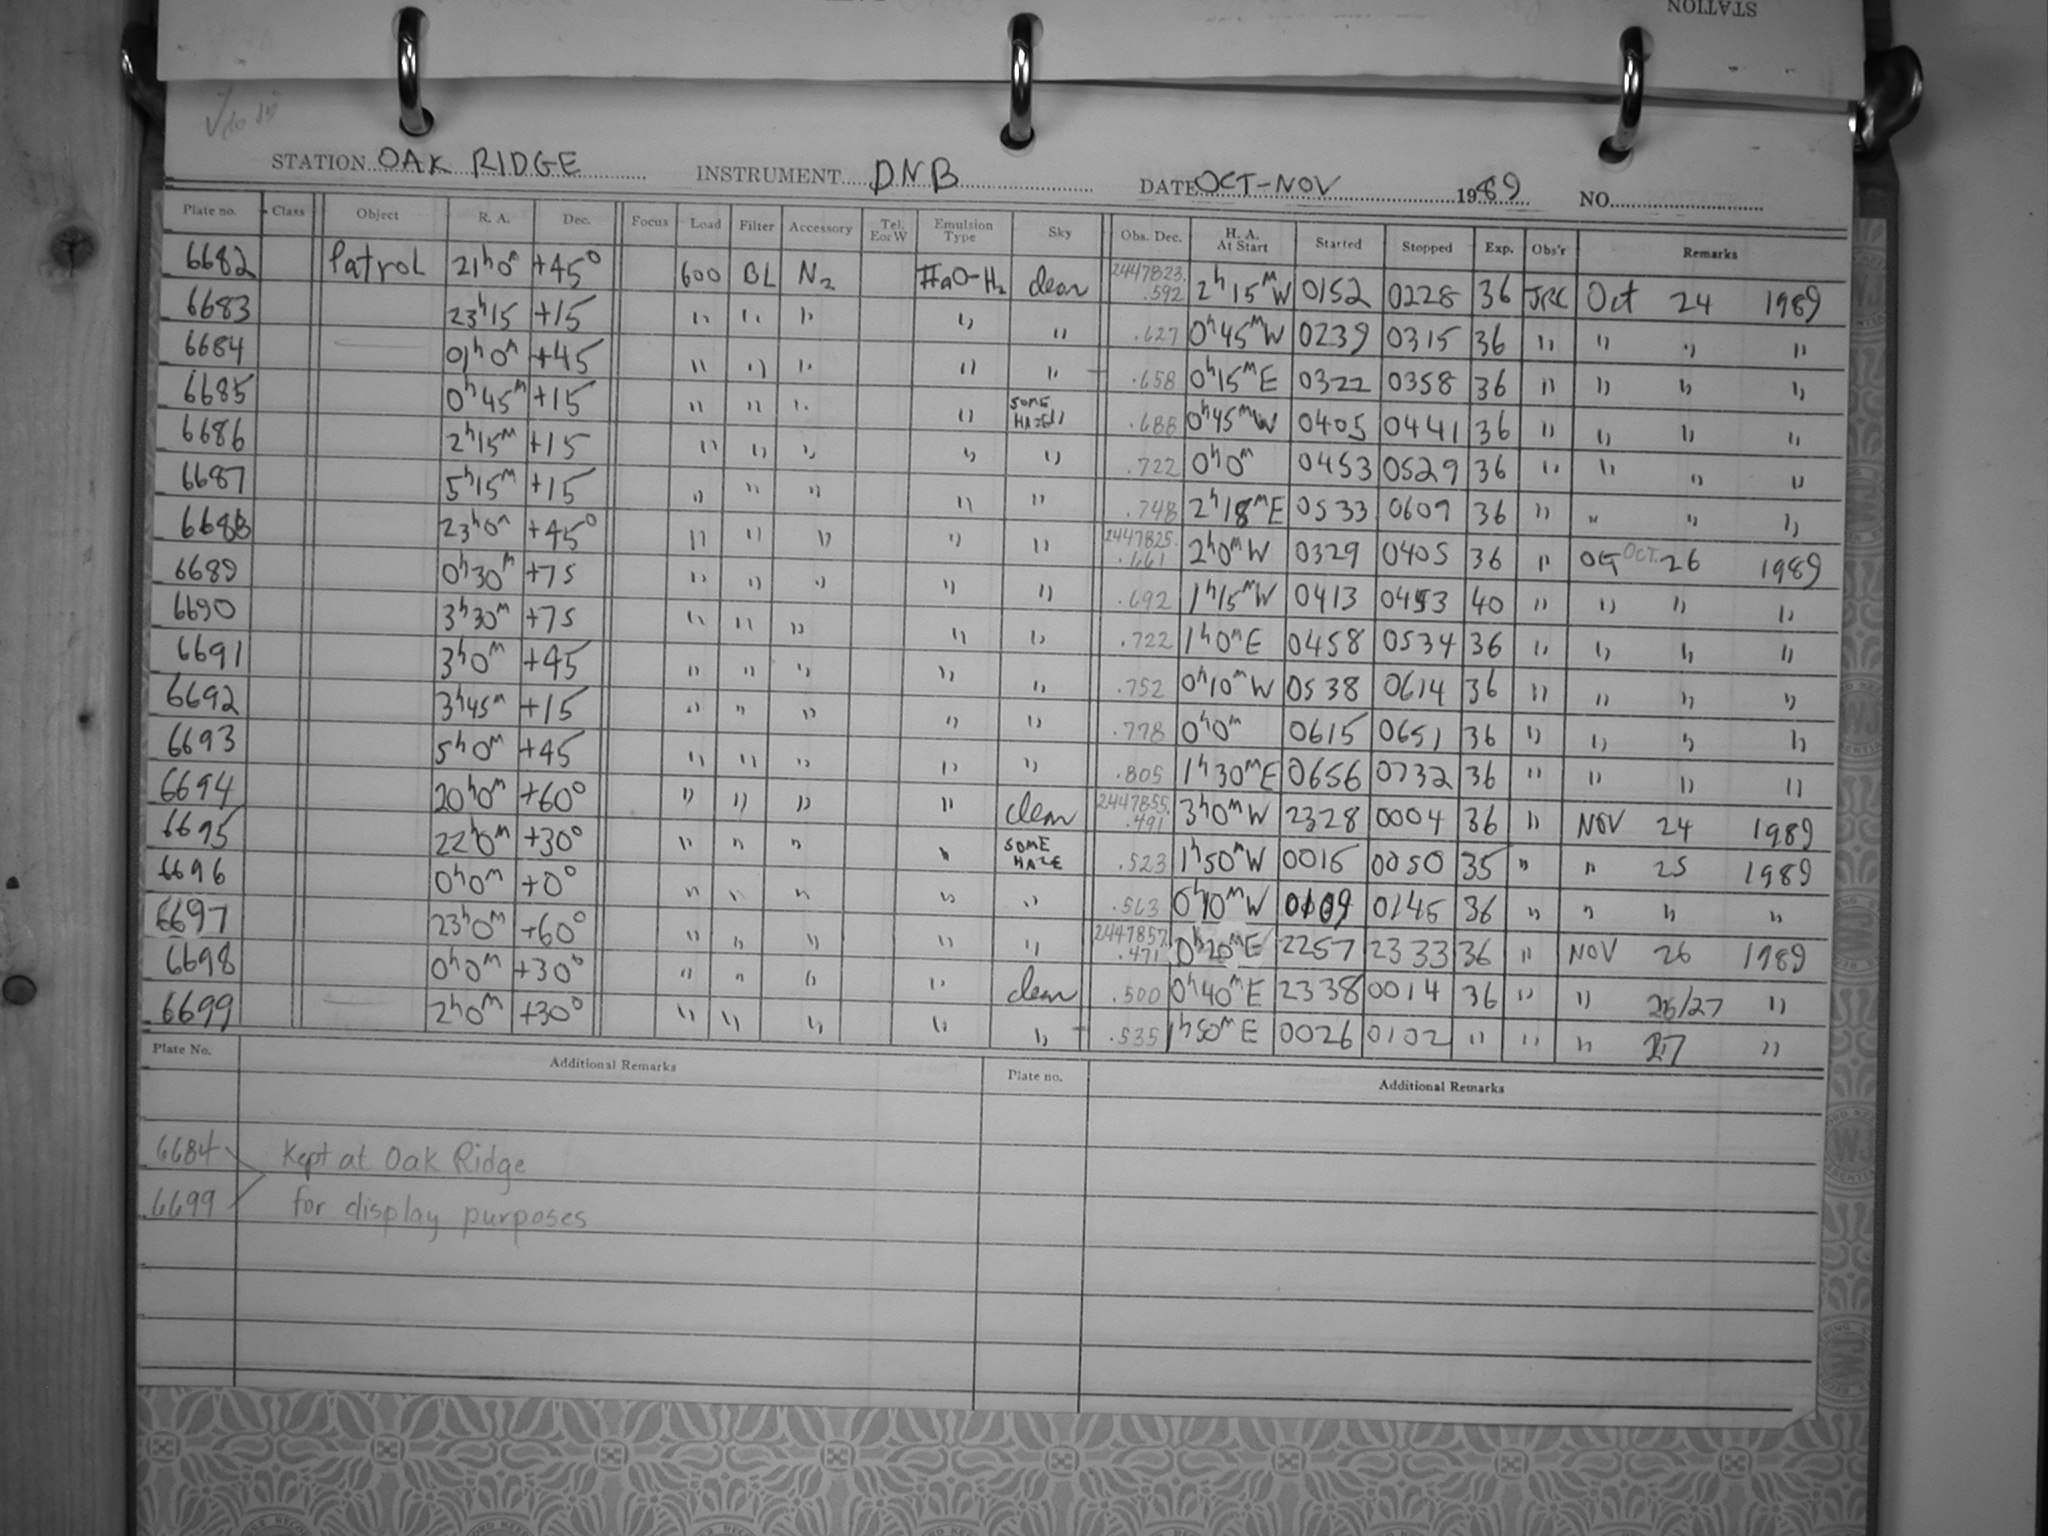 STATION
STATION OAK RIDGE INSTRUMENT DNB DATE OCT-NOV 1989 NO.
Plate no. Class Object R. A. Dec. Focus Load Filter Accessory Tel. E or W Emulsion Type Sky Obs. Dec. H. A. At Start Started Stopped Exp. Obs'r Remarks
6682 Patrol 21h0m +45° 600 BL N2 IIaO-H2 clear 2447823.592 2h15mW 0152 0228 36 JRC Oct 24 1989
6683 23h15 +15 " " " " " .627 0h45mW 0239 0315 36 " " " "
6684 01h0m +45 " " " " " .658 0h15mE 0322 0358 36 " " " "
6685 0h45m +15 " " " " SOME HAZE .688 0h45mW 0405 0441 36 " " " "
6686 2h15m +15 " " " " " .722 0h0m 0453 0529 36 " " " "
6687 5h15m +15 " " " " " .748 2h18mE 0533 0609 36 " " " "
6688 23h0m +45° " " " " " 2447825.661 2h0mW 0329 0405 36 " OCT OCT. 26 1989
6689 0h30m +75 " " " " " .692 1h15mW 0413 0453 40 " " " "
6690 3h30m +75 " " " " " .722 1h0mE 0458 0534 36 " " " "
6691 3h0m +45 " " " " " .752 0h10mW 0538 0614 36 " " " "
6692 3h45m +15 " " " " " .778 0h0m 0615 0651 36 " " " "
6693 5h0m +45 " " " " " .805 1h30mE 0656 0732 36 " " " "
6694 20h0m +60° " " " " clear 2447855.491 3h0mW 2328 0004 36 " NOV 24 1989
6695 22h0m +30° " " " " SOME HAZE .523 1h50mW 0015 0050 35 " " 25 1989
6696 0h0m +0° " " " " " .563 0h10mW 0109 0145 36 " " " "
6697 23h0m +60° " " " " " 2447857.471 0h20mE 2257 2333 36 " NOV 26 1989
6698 0h0m +30° " " " " clear .500 0h40mE 2338 0014 36 " " 26/27 "
6699 2h0m +30° " " " " " .535 1h50mE 0026 0102 " " " 27 "
Plate No. Additional Remarks Plate no. Additional Remarks
6684 Kept at Oak Ridge
6699 for display purposes